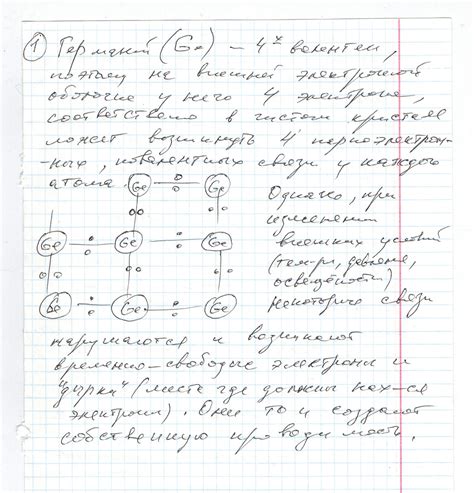 1 Германий (Ge) – 4х валентен,
поэтому на внешней электронной
оболочке у него 4 электрона,
соответственно в чистом кристале
может возникнуть 4 парноэлектрон-
ных, ковалентных связи у каждого
атома.
Ge Ge
Однако, при
изменении
Ge Ge Ge
внешних условий
(темпер, давление,
освещённости)
Ge Ge Ge
некоторые связи
нарушаются и возникают
временно-свободые электроны и
"дырки" (места где должны нах-ся
электроны). Они то и создают
собственную проводимость.